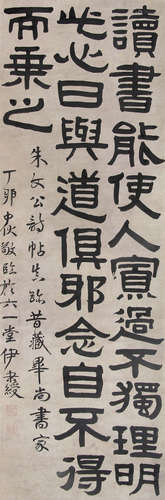 讀書能使人寡過不獨理明
此心日與道俱邪念自不得
而乘之
朱文公詩帖真跡昔藏畢尚書家
丁卯中秋敬臨於六一堂伊秉綬